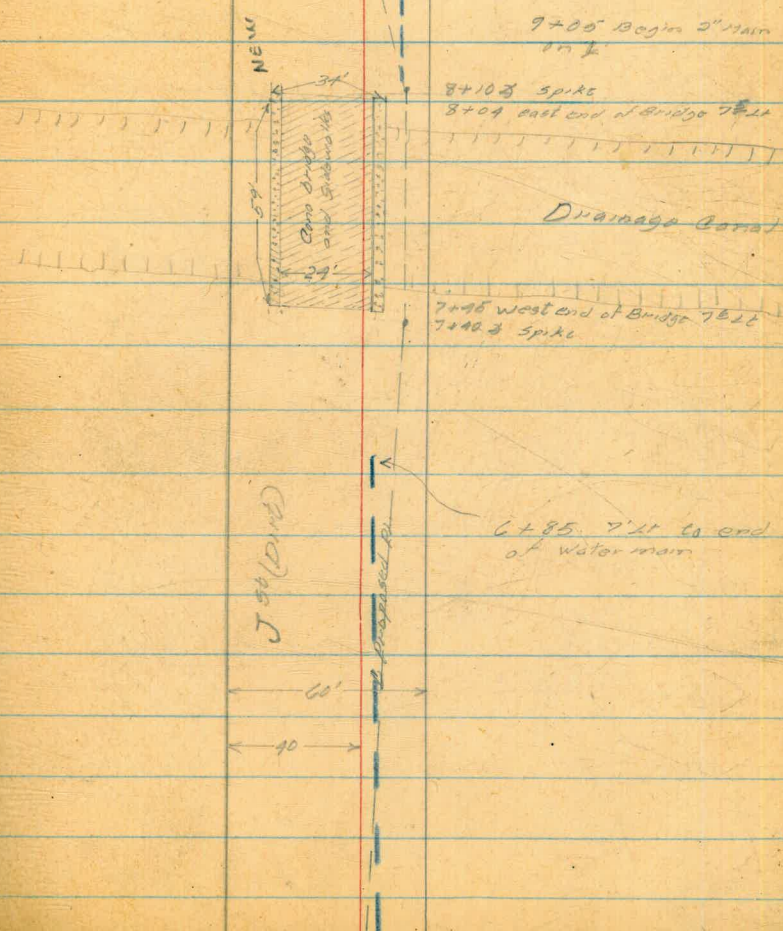 9+05 Begin 2" Main
on ⅊
NEW
34'
8+10 Spike
8+04 east end of Bridge 7⁵ Lt
Conc bridge
and sidewalks
59'
Drainage Canal
24'
7+45 west end of Bridge 7⁵ Lt
7+40 Spike
6+85 7' Lt to end
of water main
J St (Dirt)
Proposed PL
60'
40